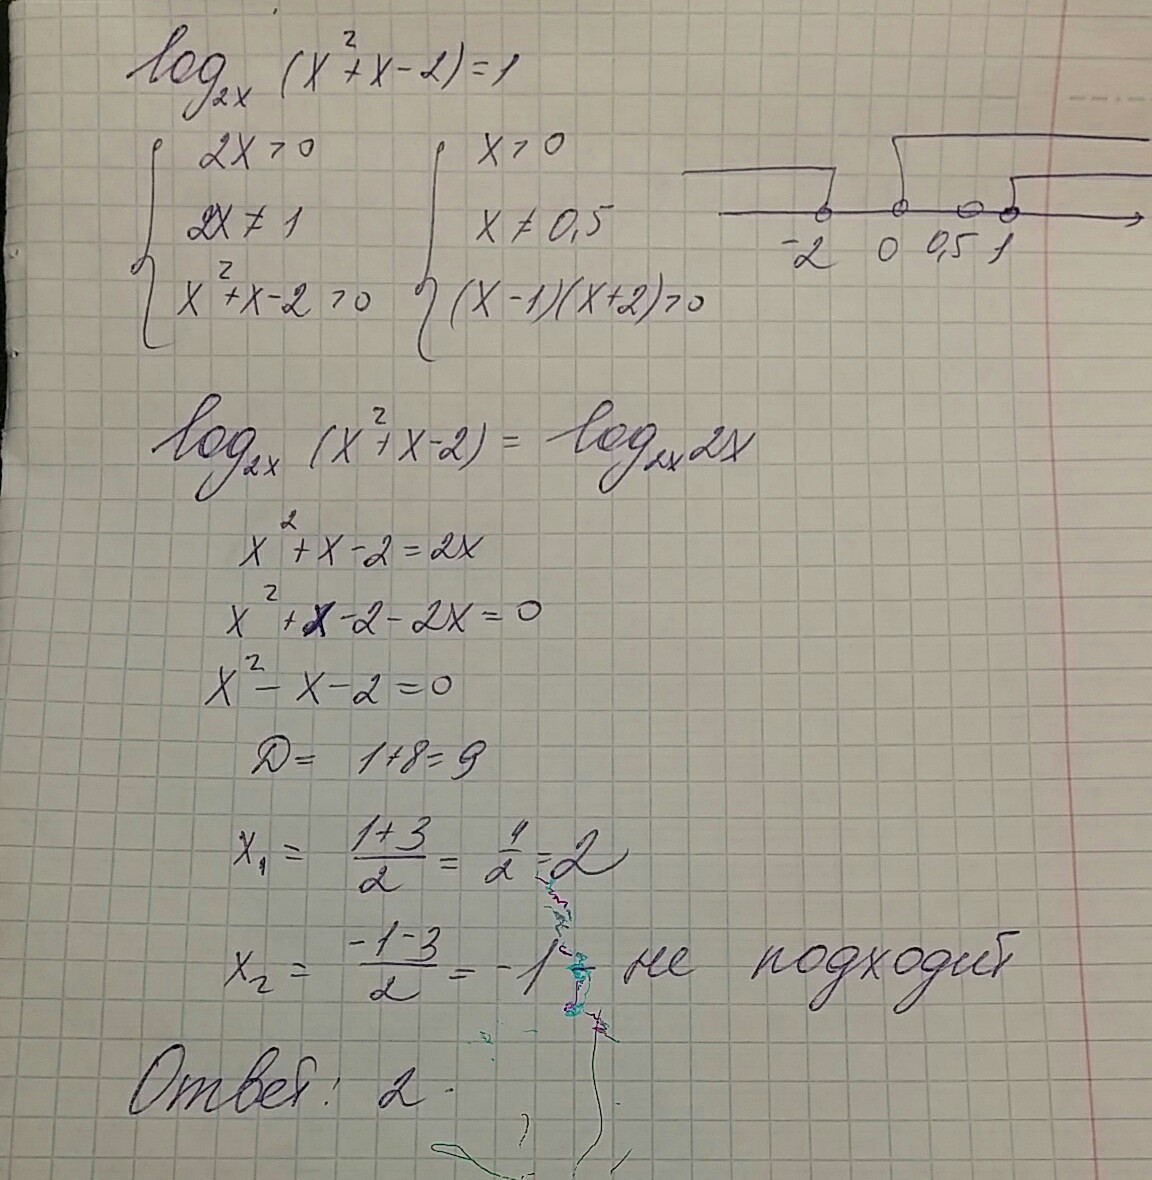 log₂ₓ (x²+x-2)=1
2x>0 x>0
2x≠1 x≠0,5
x²+x-2>0 (x-1)(x+2)>0
-2 0 0,5 1
log₂ₓ (x²+x-2) = log₂ₓ 2x
x²+x-2=2x
x²+x-2-2x=0
x²-x-2=0
D= 1+8=9
x₁ = (1+3)/2 = 4/2 = 2
x₂ = (-1-3)/2 = -1 - не подходит
Ответ: 2.